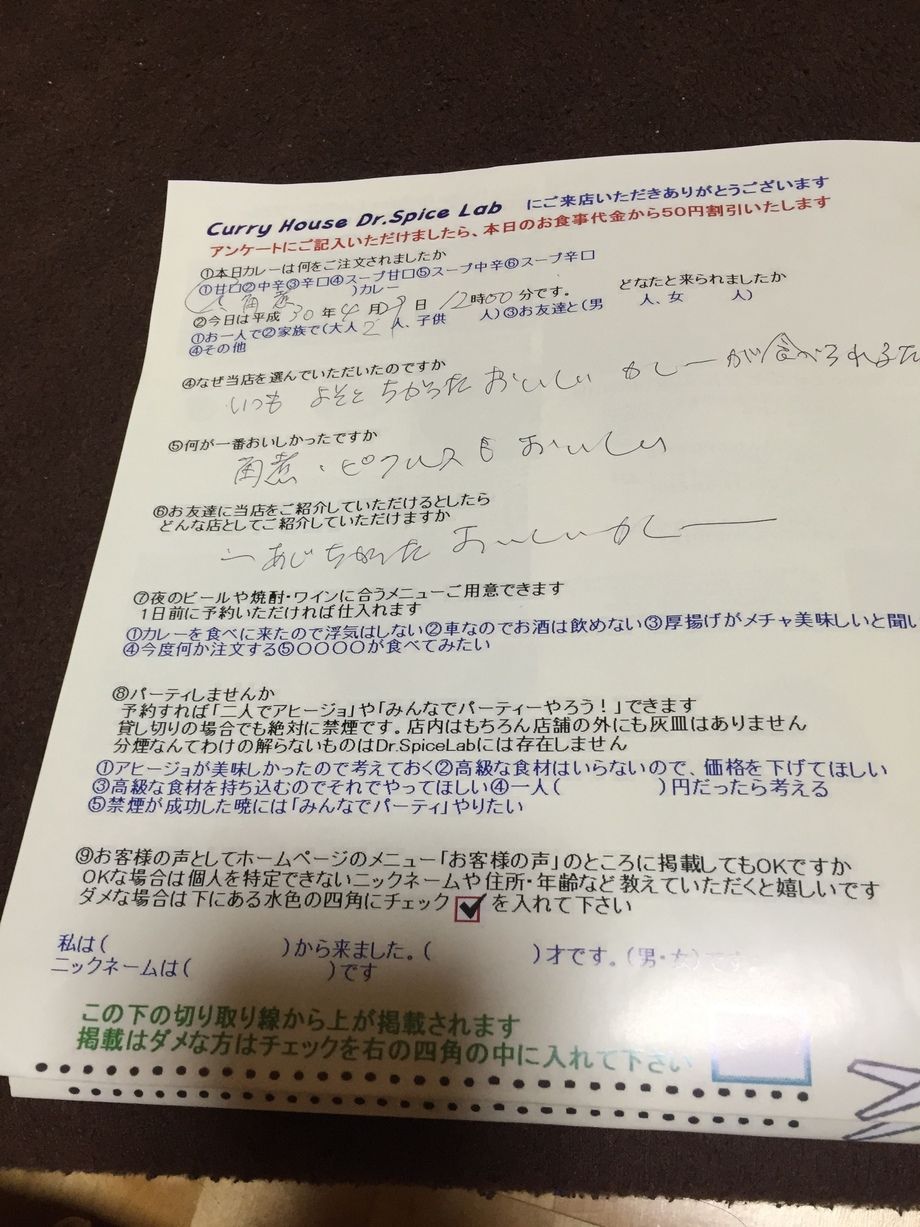 Curry House Dr.Spice Lab にご来店いただきありがとうございます
アンケートにご記入いただけましたら、本日のお食事代金から50円割引いたします
①本日カレーは何をご注文されましたか
①甘口②中辛③辛口④スープ甘口⑤スープ中辛⑥スープ辛口
角煮 )カレー
②今日は平成 30 年 4 月 29 日 12 時 00 分です。 どなたと来られましたか
①お一人で②家族で(大人 2 人、子供 人)③お友達と(男 人、女 人)
④その他
④なぜ当店を選んでいただいたのですか
いつも よそと ちがった おいしい カレーが食べられるた
⑤何が一番おいしかったですか
角煮・ピクルスも おいしい
⑥お友達に当店をご紹介していただけるとしたら
どんな店としてご紹介していただけますか
一あじちがった おいしいカレー
⑦夜のビールや焼酎・ワインに合うメニューご用意できます
1日前に予約いただければ仕入れます
①カレーを食べに来たので浮気はしない②車なのでお酒は飲めない③厚揚げがメチャ美味しいと聞い
④今度何か注文する⑤○○○○が食べてみたい
⑧パーティしませんか
予約すれば「二人でアヒージョ」や「みんなでパーティーやろう！」できます
貸し切りの場合でも絶対に禁煙です。店内はもちろん店舗の外にも灰皿はありません
分煙なんてわけの解らないものはDr.SpiceLabには存在しません
①アヒージョが美味しかったので考えておく②高級な食材はいらないので、価格を下げてほしい
③高級な食材を持ち込むのでそれでやってほしい④一人( )円だったら考える
⑤禁煙が成功した暁には「みんなでパーティ」やりたい
⑨お客様の声としてホームページのメニュー「お客様の声」のところに掲載してもOKですか
OKな場合は個人を特定できないニックネームや住所・年齢など教えていただくと嬉しいです
ダメな場合は下にある水色の四角にチェック を入れて下さい
私は( )から来ました。( )才です。(男・女)です
ニックネームは( )です
この下の切り取り線から上が掲載されます
掲載はダメな方はチェックを右の四角の中に入れて下さい